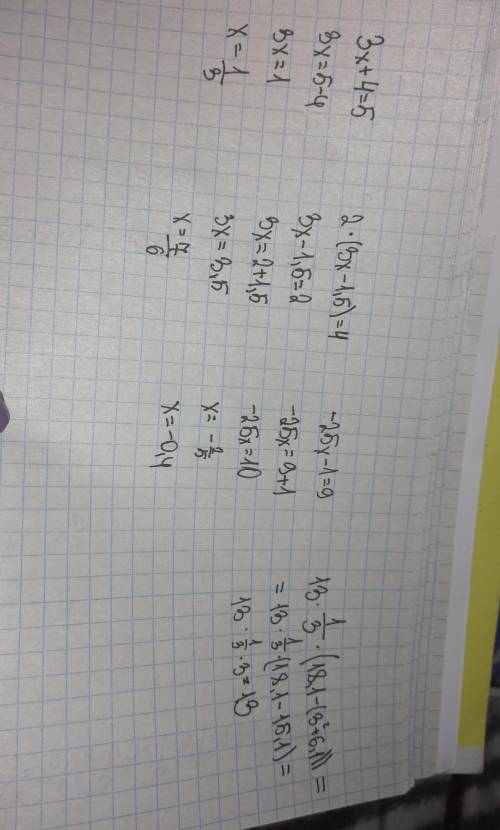 3x+4=5
3x=5-4
3x=1
x=1/3
2·(3x-1,5)=4
3x-1,5=2
3x=2+1,5
3x=3,5
x=7/6
-25x-1=9
-25x=9+1
-25x=10
x=-2/5
x=-0,4
13·1/3·(18,1-(3²+6,1))=
=13·1/3·(18,1-15,1)=
13·1/3·3=13